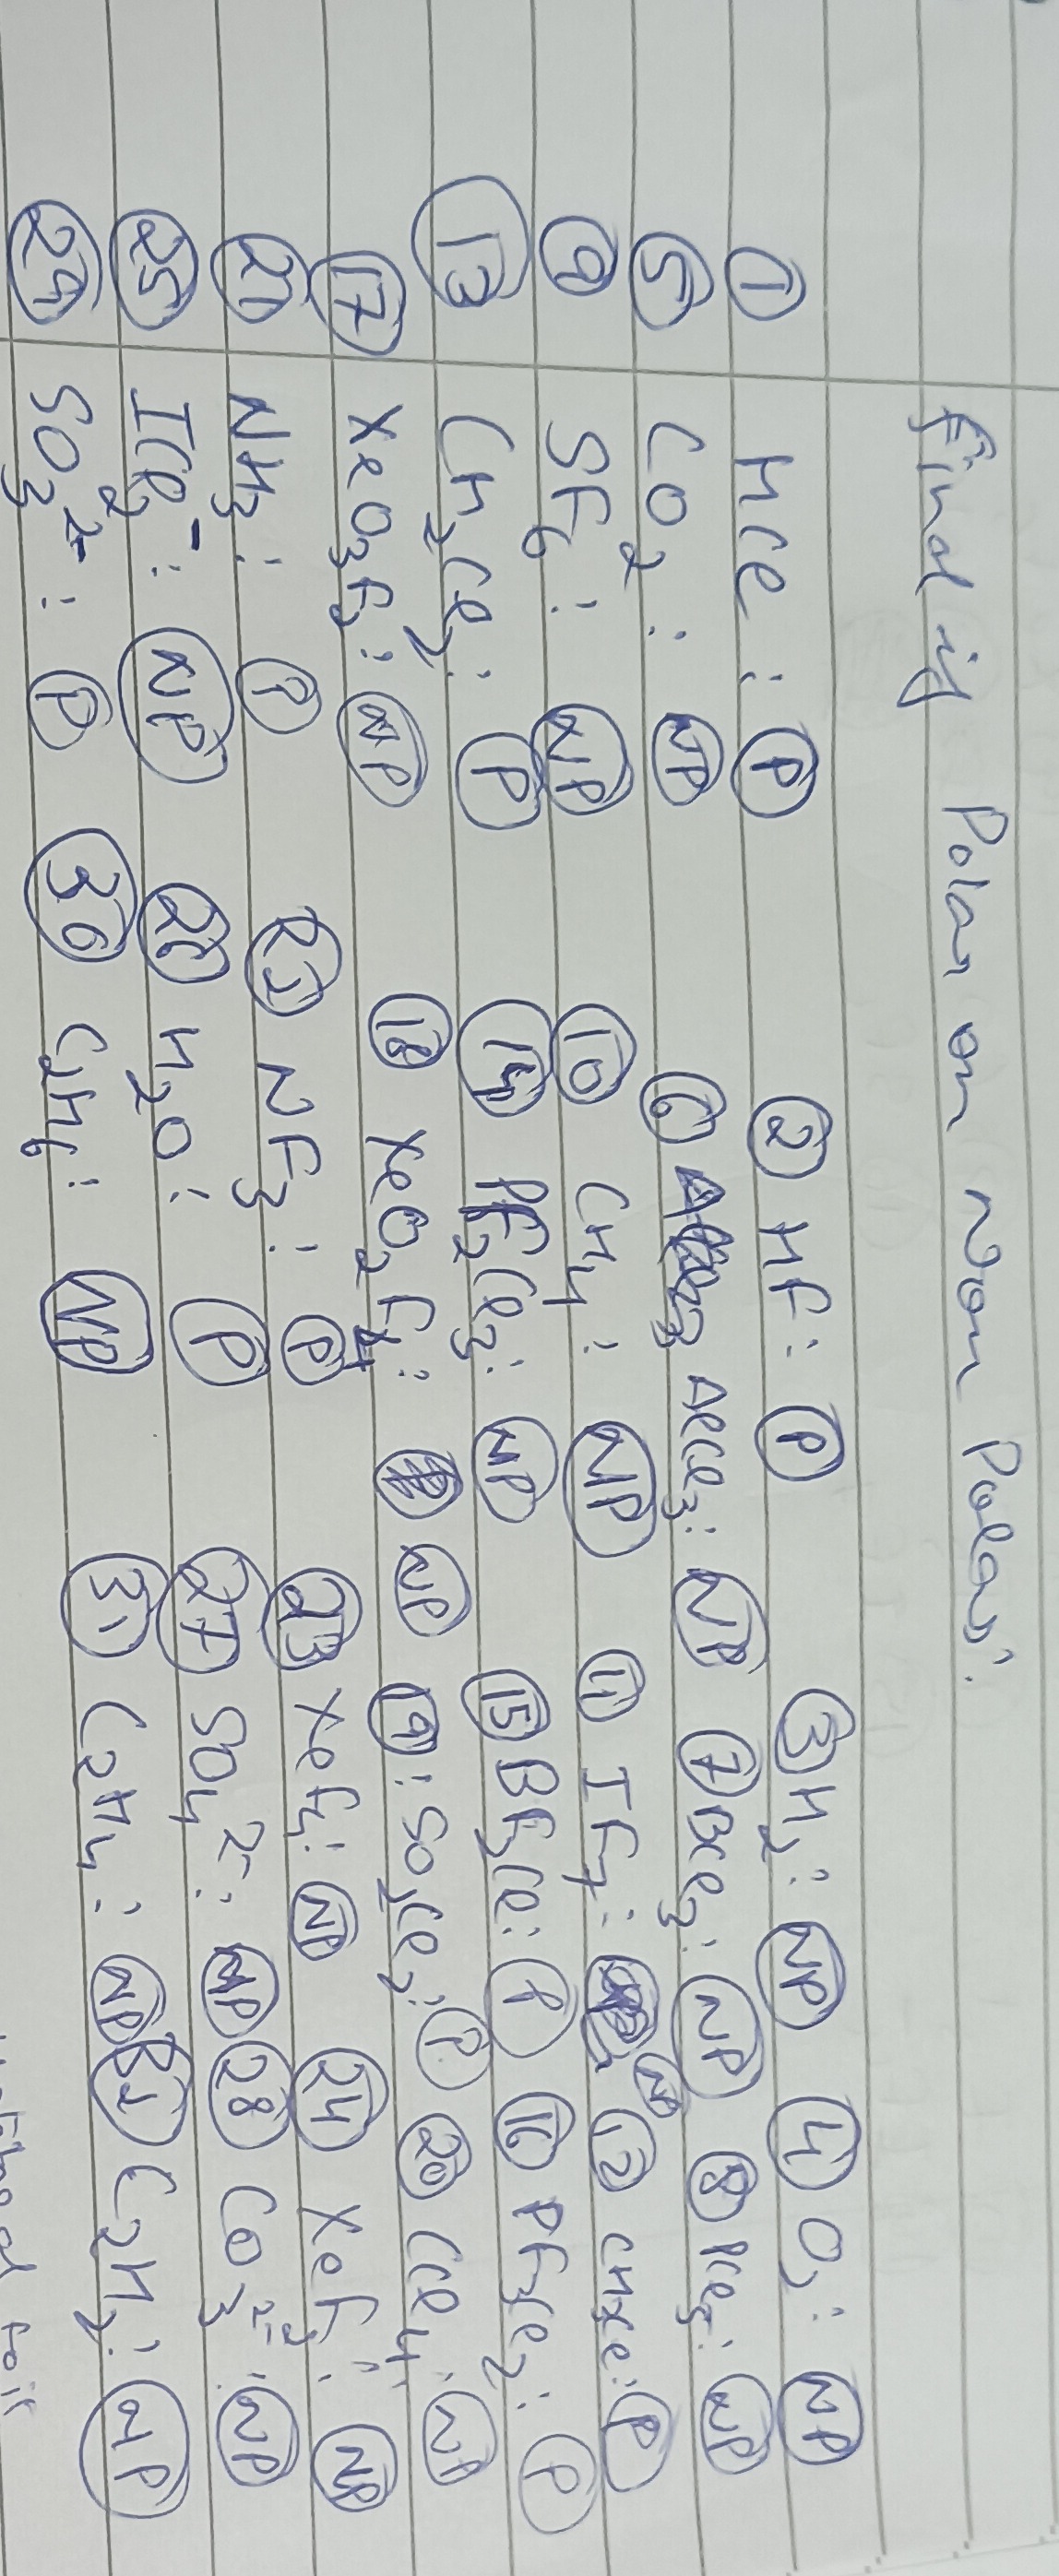 Find if Polar or Non Polar.
① HCl : Ⓟ ② HF : Ⓟ ③ H₂ : NP ④ O₂ : NP
⑤ CO₂ : NP ⑥ AlCl₃ : NP ⑦ BCl₃ : NP ⑧ PCl₅ : NP
⑨ SF₆ : NP ⑩ CH₄ : NP ⑪ IF₇ : NP ⑫ CH₃Cl : Ⓟ
⑬ CH₂Cl₂ : Ⓟ ⑭ PF₂Cl₃ : NP ⑮ BF₂Cl : Ⓟ ⑯ PF₃Cl₂ : Ⓟ
⑰ XeO₃F₂ : NP ⑱ XeO₂F₄ : NP ⑲ : SO₂Cl₂ : Ⓟ ⑳ CCl₄ : NP
㉑ NH₃ : Ⓟ ㉒ NF₃ : Ⓟ ㉓ XeF₄ : NP ㉔ XeF₂ : NP
㉕ ICl₂⁻ : NP ㉖ H₂O : Ⓟ ㉗ SO₄²⁻ : NP ㉘ CO₃²⁻ : NP
㉙ SO₃²⁻ : Ⓟ ㉚ C₂H₆ : NP ㉛ C₂H₄ : NP ㉜ C₂H₂ : NP